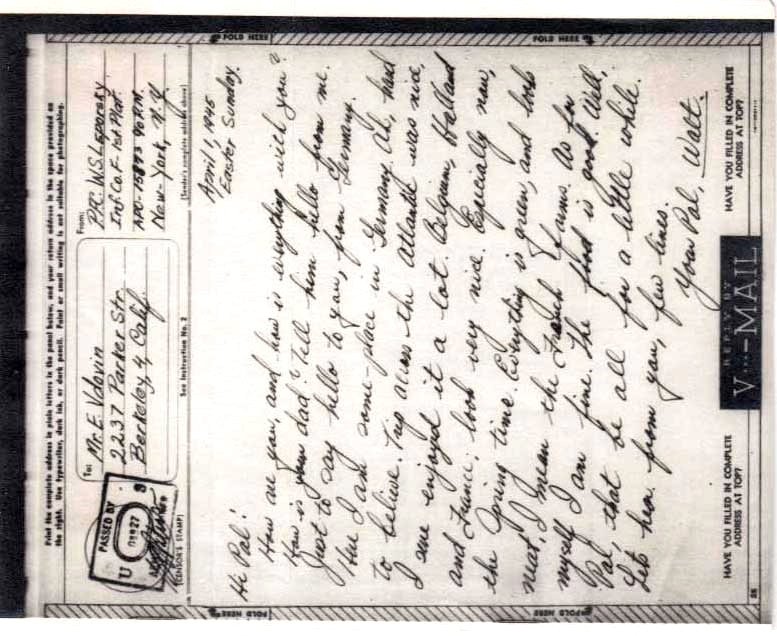 Print the complete address in plain letters in the panel below, and your return address in the space provided on
the right. Use typewriter, dark ink, or dark pencil. Faint or small writing is not suitable for photographing.
PASSED BY
U S
(CENSOR'S STAMP)
To:
Mr. E. Vdovin
2237 Parker Str.
Berkeley, 4, Calif.
See Instruction No. 2
From:
PFC. W.S. Leporsky
Inf. Co. F- 1st Plat.
APO- 15873 % P.M.
New-York, N.Y.
(Sender's complete address above)
FOLD HERE
FOLD HERE
April 1, 1945
Easter Sunday.
Hi Pal!
How are you, and how is everything with you?
How is your dad? Tell him hello from me.
Just to say hello to you, from Germany.
Here I am some-place in Germany. Ah, hard
to believe. Trip across the Atlantic was nice,
I sure enjoyed it a lot. Belgium, Holland
and France; look very nice. Especially now,
the Spring time. Everything is green, and look
neat, I mean the French Farms. As for
myself I am fine. The food is good. Well,
Pal that be all for a little while.
Lets hear from you, few lines.
Your Pal, Walt.
HAVE YOU FILLED IN COMPLETE
ADDRESS AT TOP?
REPLY BY
V···—MAIL
HAVE YOU FILLED IN COMPLETE
ADDRESS AT TOP?
FOLD HERE
FOLD HERE